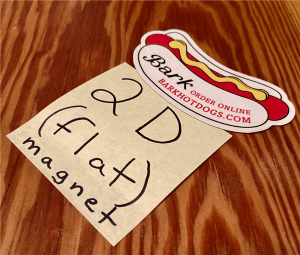 Bark
ORDER ONLINE
BARKHOTDOGS.COM
2D
(flat)
magnet